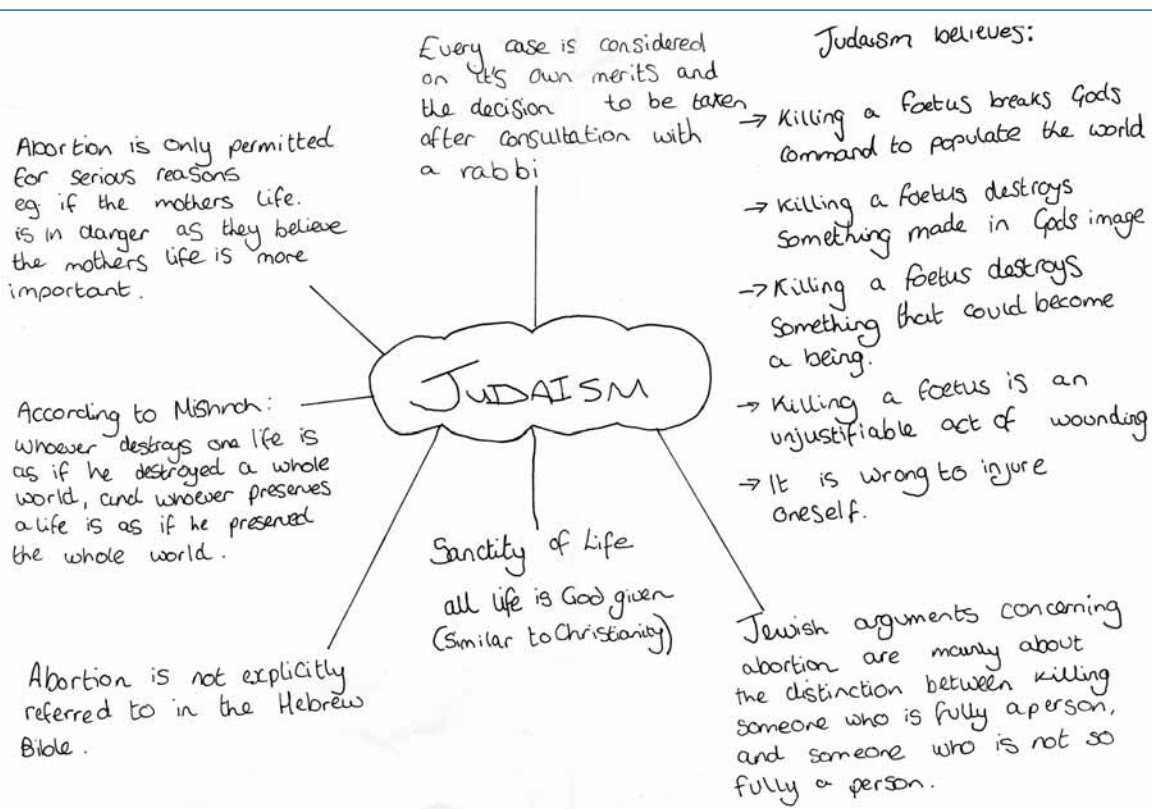 Every case is considered
on it's own merits and
the decision to be taken
after consultation with
a rabbi
Judaism believes:
→ Killing a foetus breaks Gods
command to populate the world
→ Killing a foetus destroys
something made in Gods image
→ Killing a foetus destroys
something that could become
a being.
→ Killing a foetus is an
unjustifiable act of wounding
→ It is wrong to injure
oneself.
Abortion is only permitted
for serious reasons
eg. if the mothers life.
is in danger as they believe
the mothers life is more
important.
JUDAISM
According to Mishnah:
whoever destroys one life is
as if he destroyed a whole
world, and whoever preserves
a life is as if he preserved
the whole world.
Sanctity of Life
all life is God given
(similar to Christianity)
Abortion is not explicitly
referred to in the Hebrew
Bible.
Jewish arguments concerning
abortion are mainly about
the distinction between killing
someone who is fully a person,
and someone who is not so
fully a person.